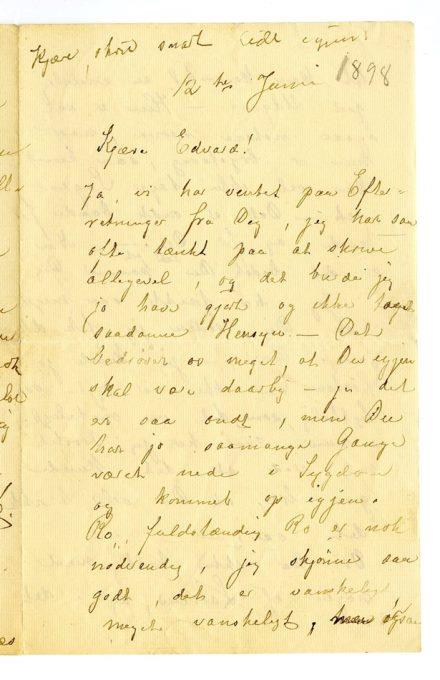 Kjære, skriv snart
12te Juni 1898
Kjære Edvard!
Ja, vi har ventet paa Efter=
retninger fra Dig, jeg har saa
ofte tænkt paa at skrive
allligevel, og det burde jeg
jo have gjort og ikke taget
saadanne Hensyn. — Det
bedrøver os meget, at Du igjen
skal være daarlig — ja det
er saa ondt, men Du
har jo saamange Gange
været nede i Sygdom
og kommet op igjen.
Ro, fuldstændig Ro er nok
nødvendig, jeg skjønner saa
godt, det er vanskeligt
meget vanskeligt, men ogsaa